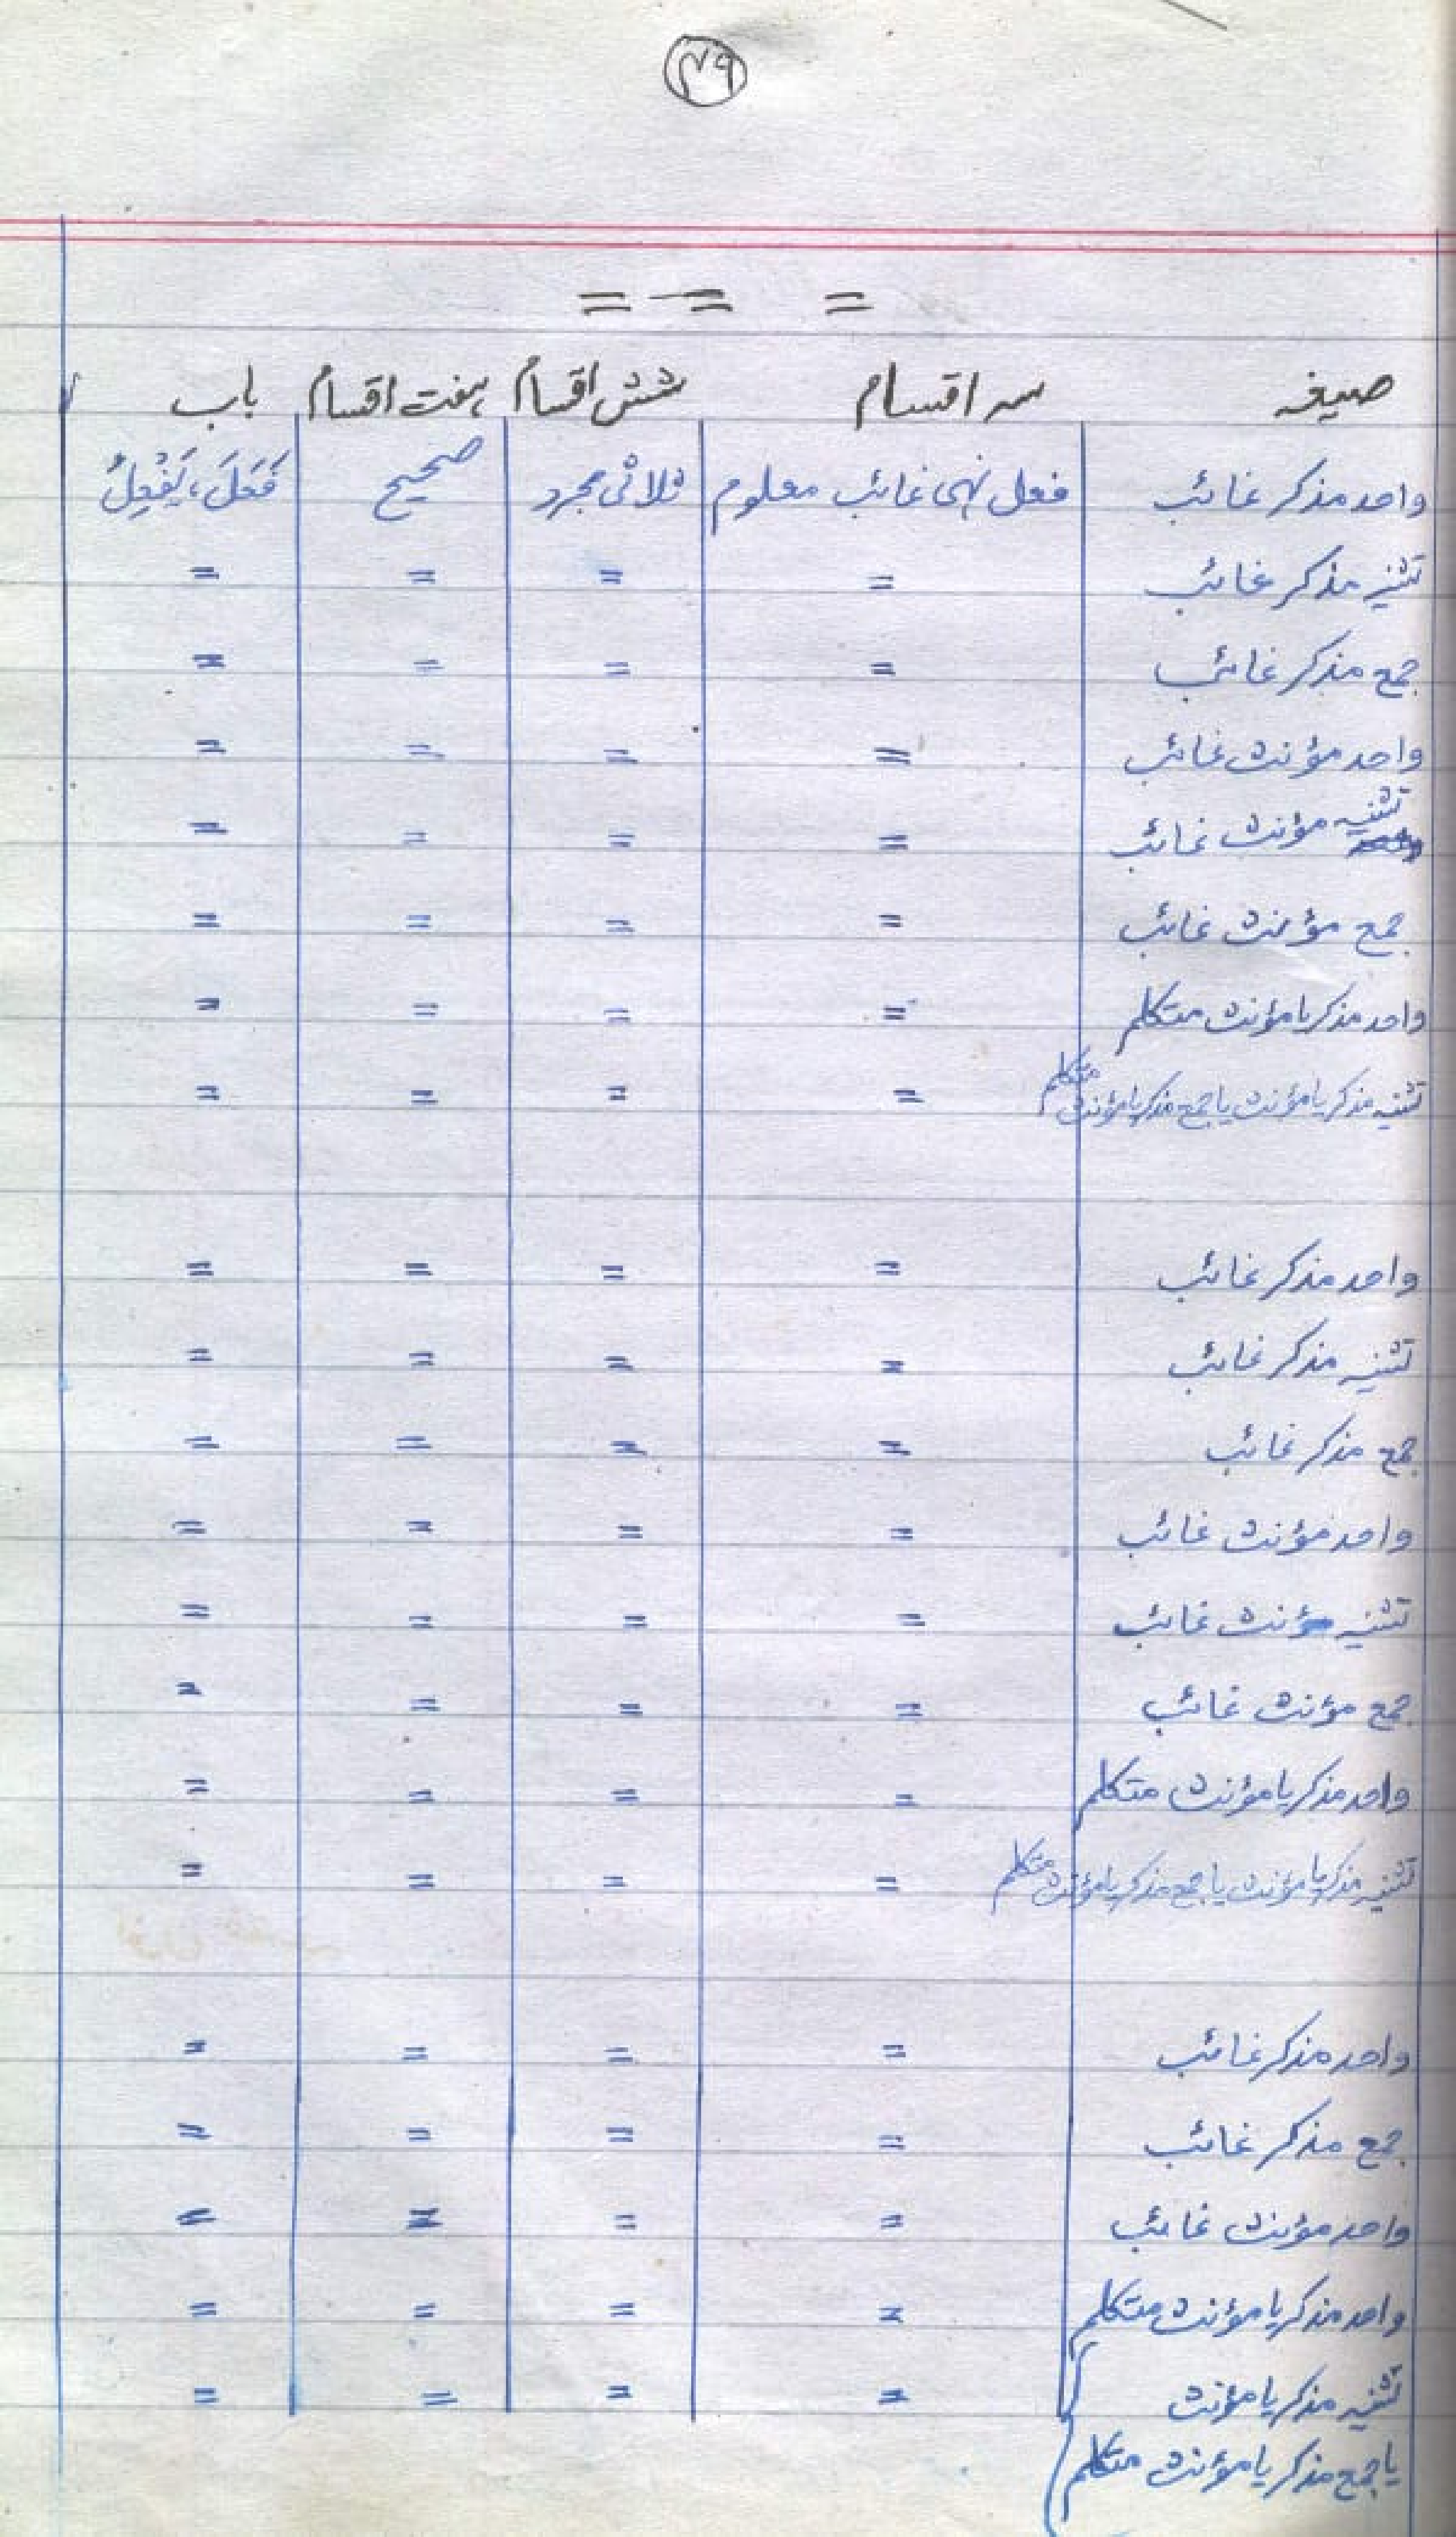 ۴۹
= = =
صیغہ سہ اقسام شش اقسام ہفت اقسام باب
واحد مذکر غائب فعل نہی غائب معلوم ثلاثی مجرد صحیح فَعَلَ، یَفْعِلُ
تثنیہ مذکر غائب = = = =
جمع مذکر غائب = = = =
واحد مؤنث غائب = = = =
تثنیہ مؤنث غائب = = = =
جمع مؤنث غائب = = = =
واحد مذکر یا مؤنث متکلم = = = =
تثنیہ مذکر یا مؤنث یا جمع مذکر یا مؤنث متکلم = = = =
واحد مذکر غائب = = = =
تثنیہ مذکر غائب = = = =
جمع مذکر غائب = = = =
واحد مؤنث غائب = = = =
تثنیہ مؤنث غائب = = = =
جمع مؤنث غائب = = = =
واحد مذکر یا مؤنث متکلم = = = =
تثنیہ مذکر یا مؤنث یا جمع مذکر یا مؤنث متکلم = = = =
واحد مذکر غائب = = = =
جمع مذکر غائب = = = =
واحد مؤنث غائب = = = =
واحد مذکر یا مؤنث متکلم = = = =
تثنیہ مذکر یا مؤنث = = = =
یا جمع مذکر یا مؤنث متکلم